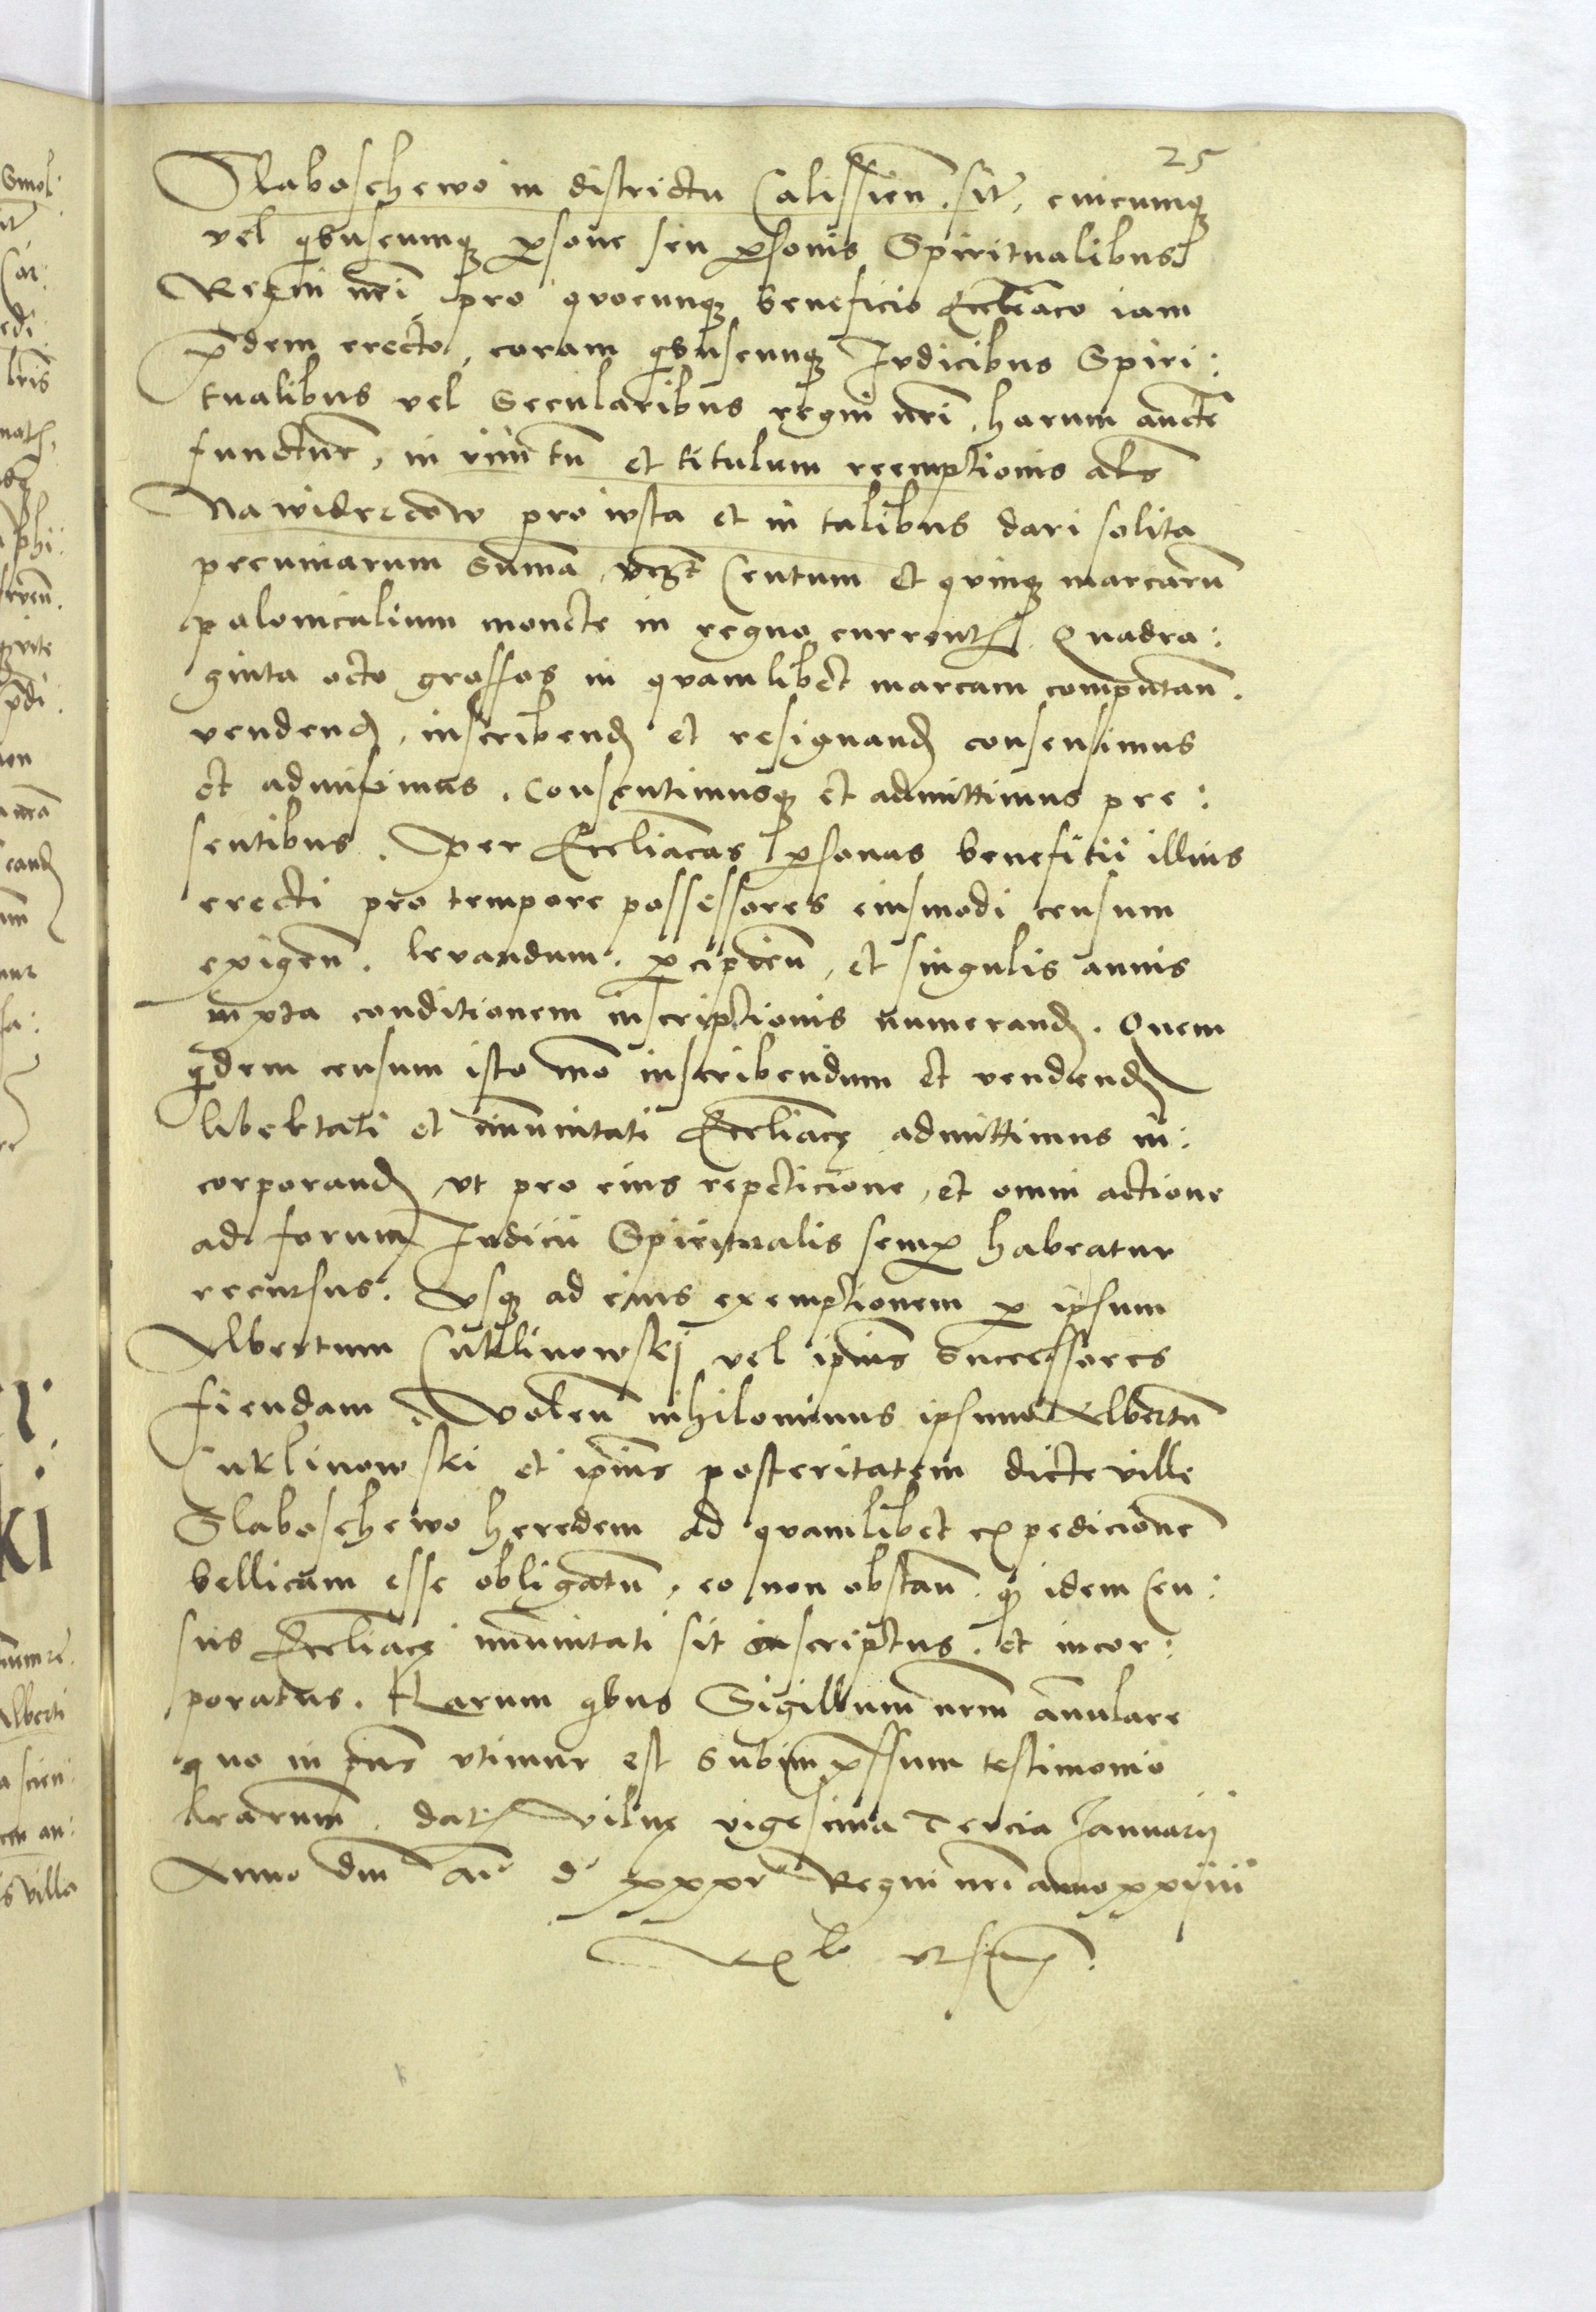 25
Slaboschewo in districtu Calissien̄. sit̄, cuicumq̨
vel qͥbuscumq̨ ꝑsone seu ꝑsonis Spiritualibus
Regni nr̄i pro quocunq̨ beneficio Eccl̄iaco iam
p̄dem erecto, coram qͥbuscunq̨ Iudicibus Spiri:
tualibus vel Secularibus regni nr̄i, harum aucte
functur̄, in vim tn̄ et titulum reemptionis al̄s
Na widrecow pro iusta et in talibus dari solita
pecuniarum Summa, vꝫt Centum et quinq̨ marcarū
polonicalium monete in regno currentꝭ Quadra:
ginta octo grossos in quamlibet marcam computan̄.
vendend, inscribend et resignand consensimus
et admisimus. Consentimusq̨ et admittimus pre:
sentibus. Per Eccliācas ꝑsonas beneficii illius
erecti pro tempore possessores eiusmodi censum
exigen̄. levandum. ꝑcipien̄, et singulis annis
iuxta conditionem inscriptionis numerand. Quem
qͥdem censum isto mō inscribendum et vendend
libertati et im̄unitati Eccliācę admittimus in:
corporand, ut pro eius repeticione, et omni actione
ad forum Iudicii Spiritualis semꝑ habeatur
recursus. Usq̨ ad eius exemptionem ꝑ ipsum
Albertum Cuklinowskj vel ipīus Successores
fiendam. Volen̄ nihilominus ipsum Albertū
Cuklinowski et ipīus posteritatem dicte ville
Slaboschewo heredem ad quamlibet expedicionē
bellicam esse obligatū, eo non obstan̄. qͩ idem Cen:
sus Eccliācę im̄unitati sit inscriptus. et incor:
poratus. Harum qͥbus Sigillum nr̄m an̄ulare
quo in pn̄s utimur est Subimp̄ssum testimonio
lr̄arum. datꝭ Vilnę vigesima Tercia Januarij
Anno dn̄i M° d° xxxv° Regni nr̄i anno xxviiii